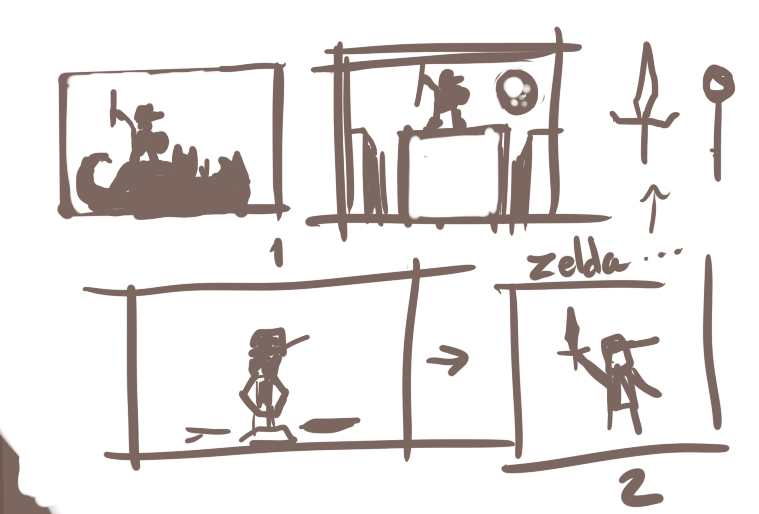 1
zelda...
2